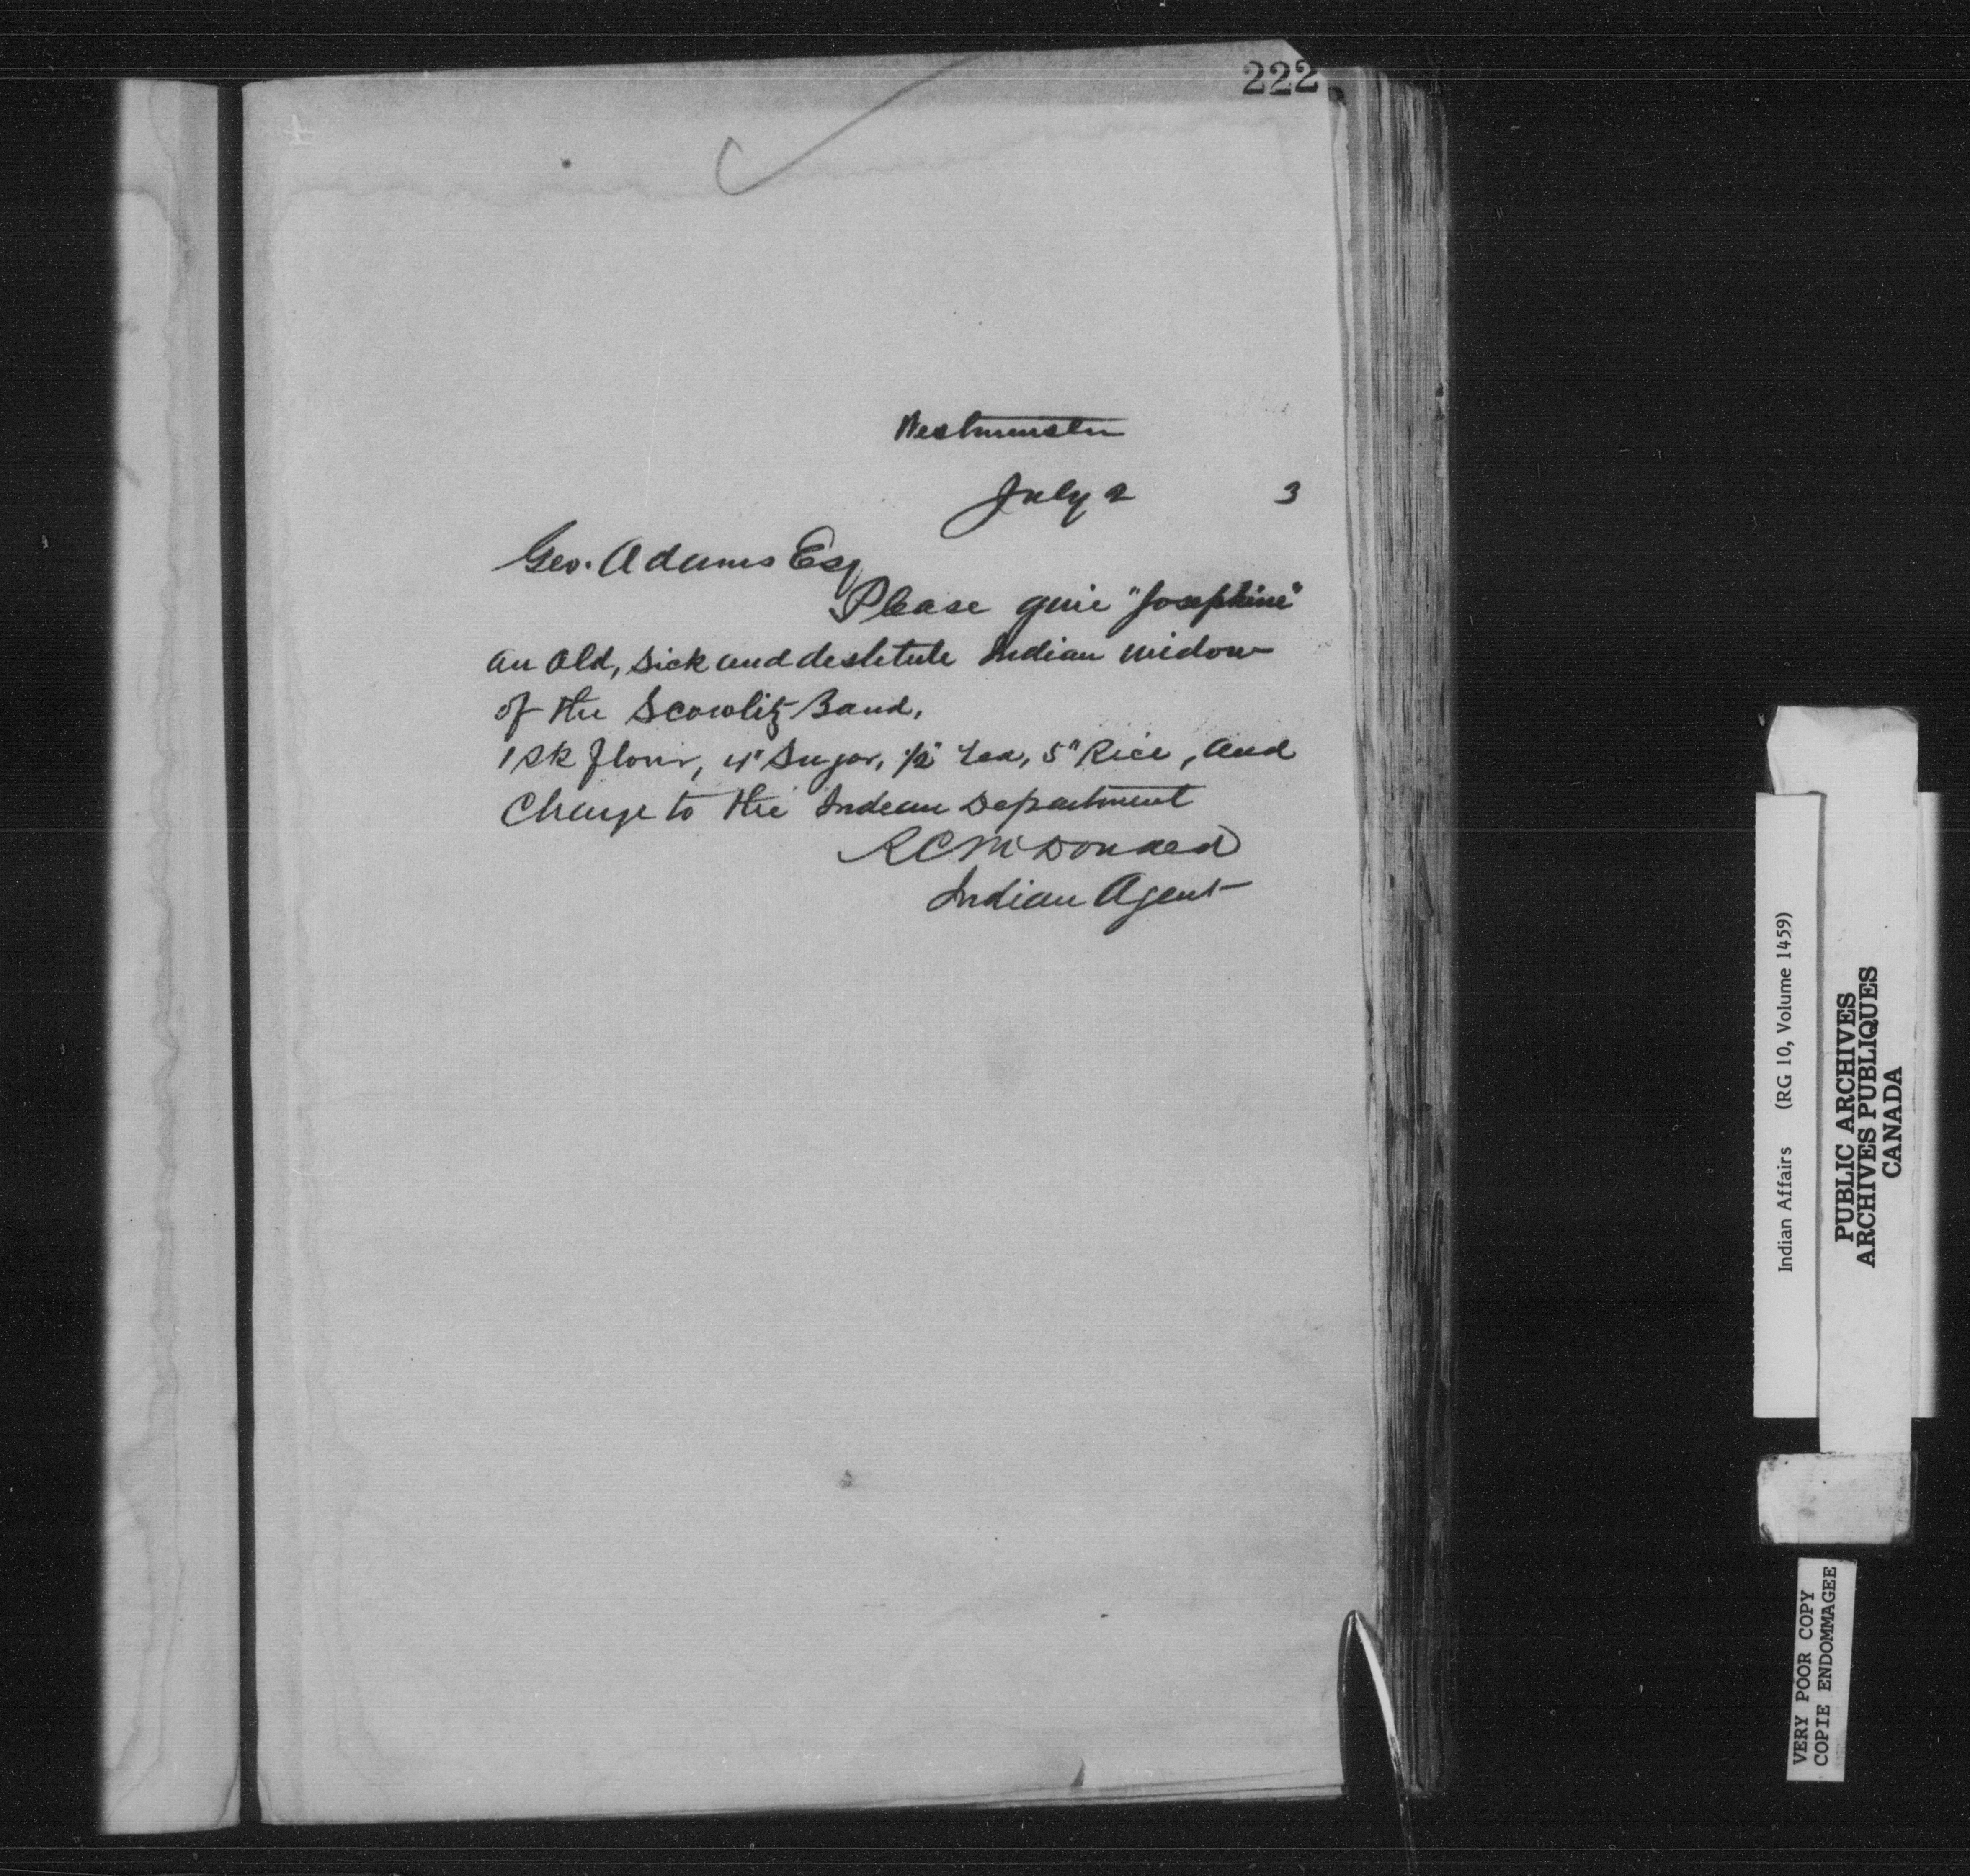 222
Westminster
July 2 3
Geo. Adams Esq
Please give "Josephine"
an old, sick and destitute Indian widow
of the Scowlitz Band,
1 sk flour, 4" Sugar, 1/2" Tea, 5" Rice, and
Charge to the Indian Department
R C McDonald
Indian Agent
Indian Affairs (RG 10, Volume 1459)
PUBLIC ARCHIVES
ARCHIVES PUBLIQUES
CANADA
VERY POOR COPY
COPIE ENDOMMAGEE